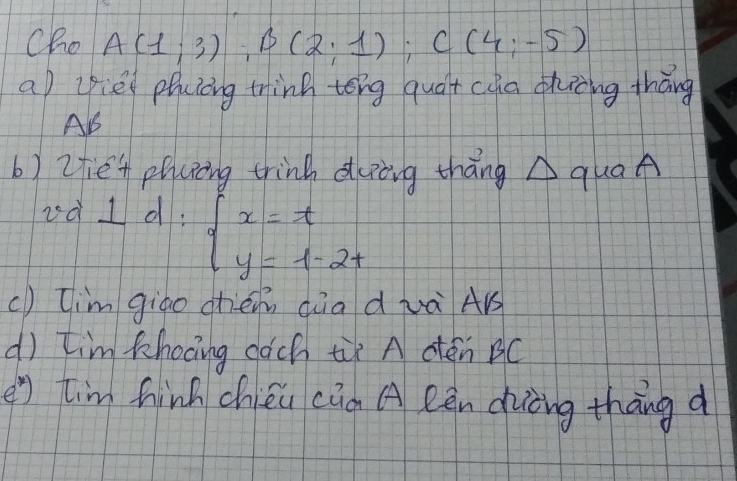 Cho A(1;3); B(2;1); C(4;-5)
a) Viết phương trình tổng quát của đường thẳng
AB
b) Viết phương trình đường thẳng Δ qua A
và ⊥ d: { x = t
y = 1-2t
c) Tìm giao điểm của d và AB
d) Tìm khoảng cách từ A đến BC
e*) Tìm hình chiếu của A lên đường thẳng d